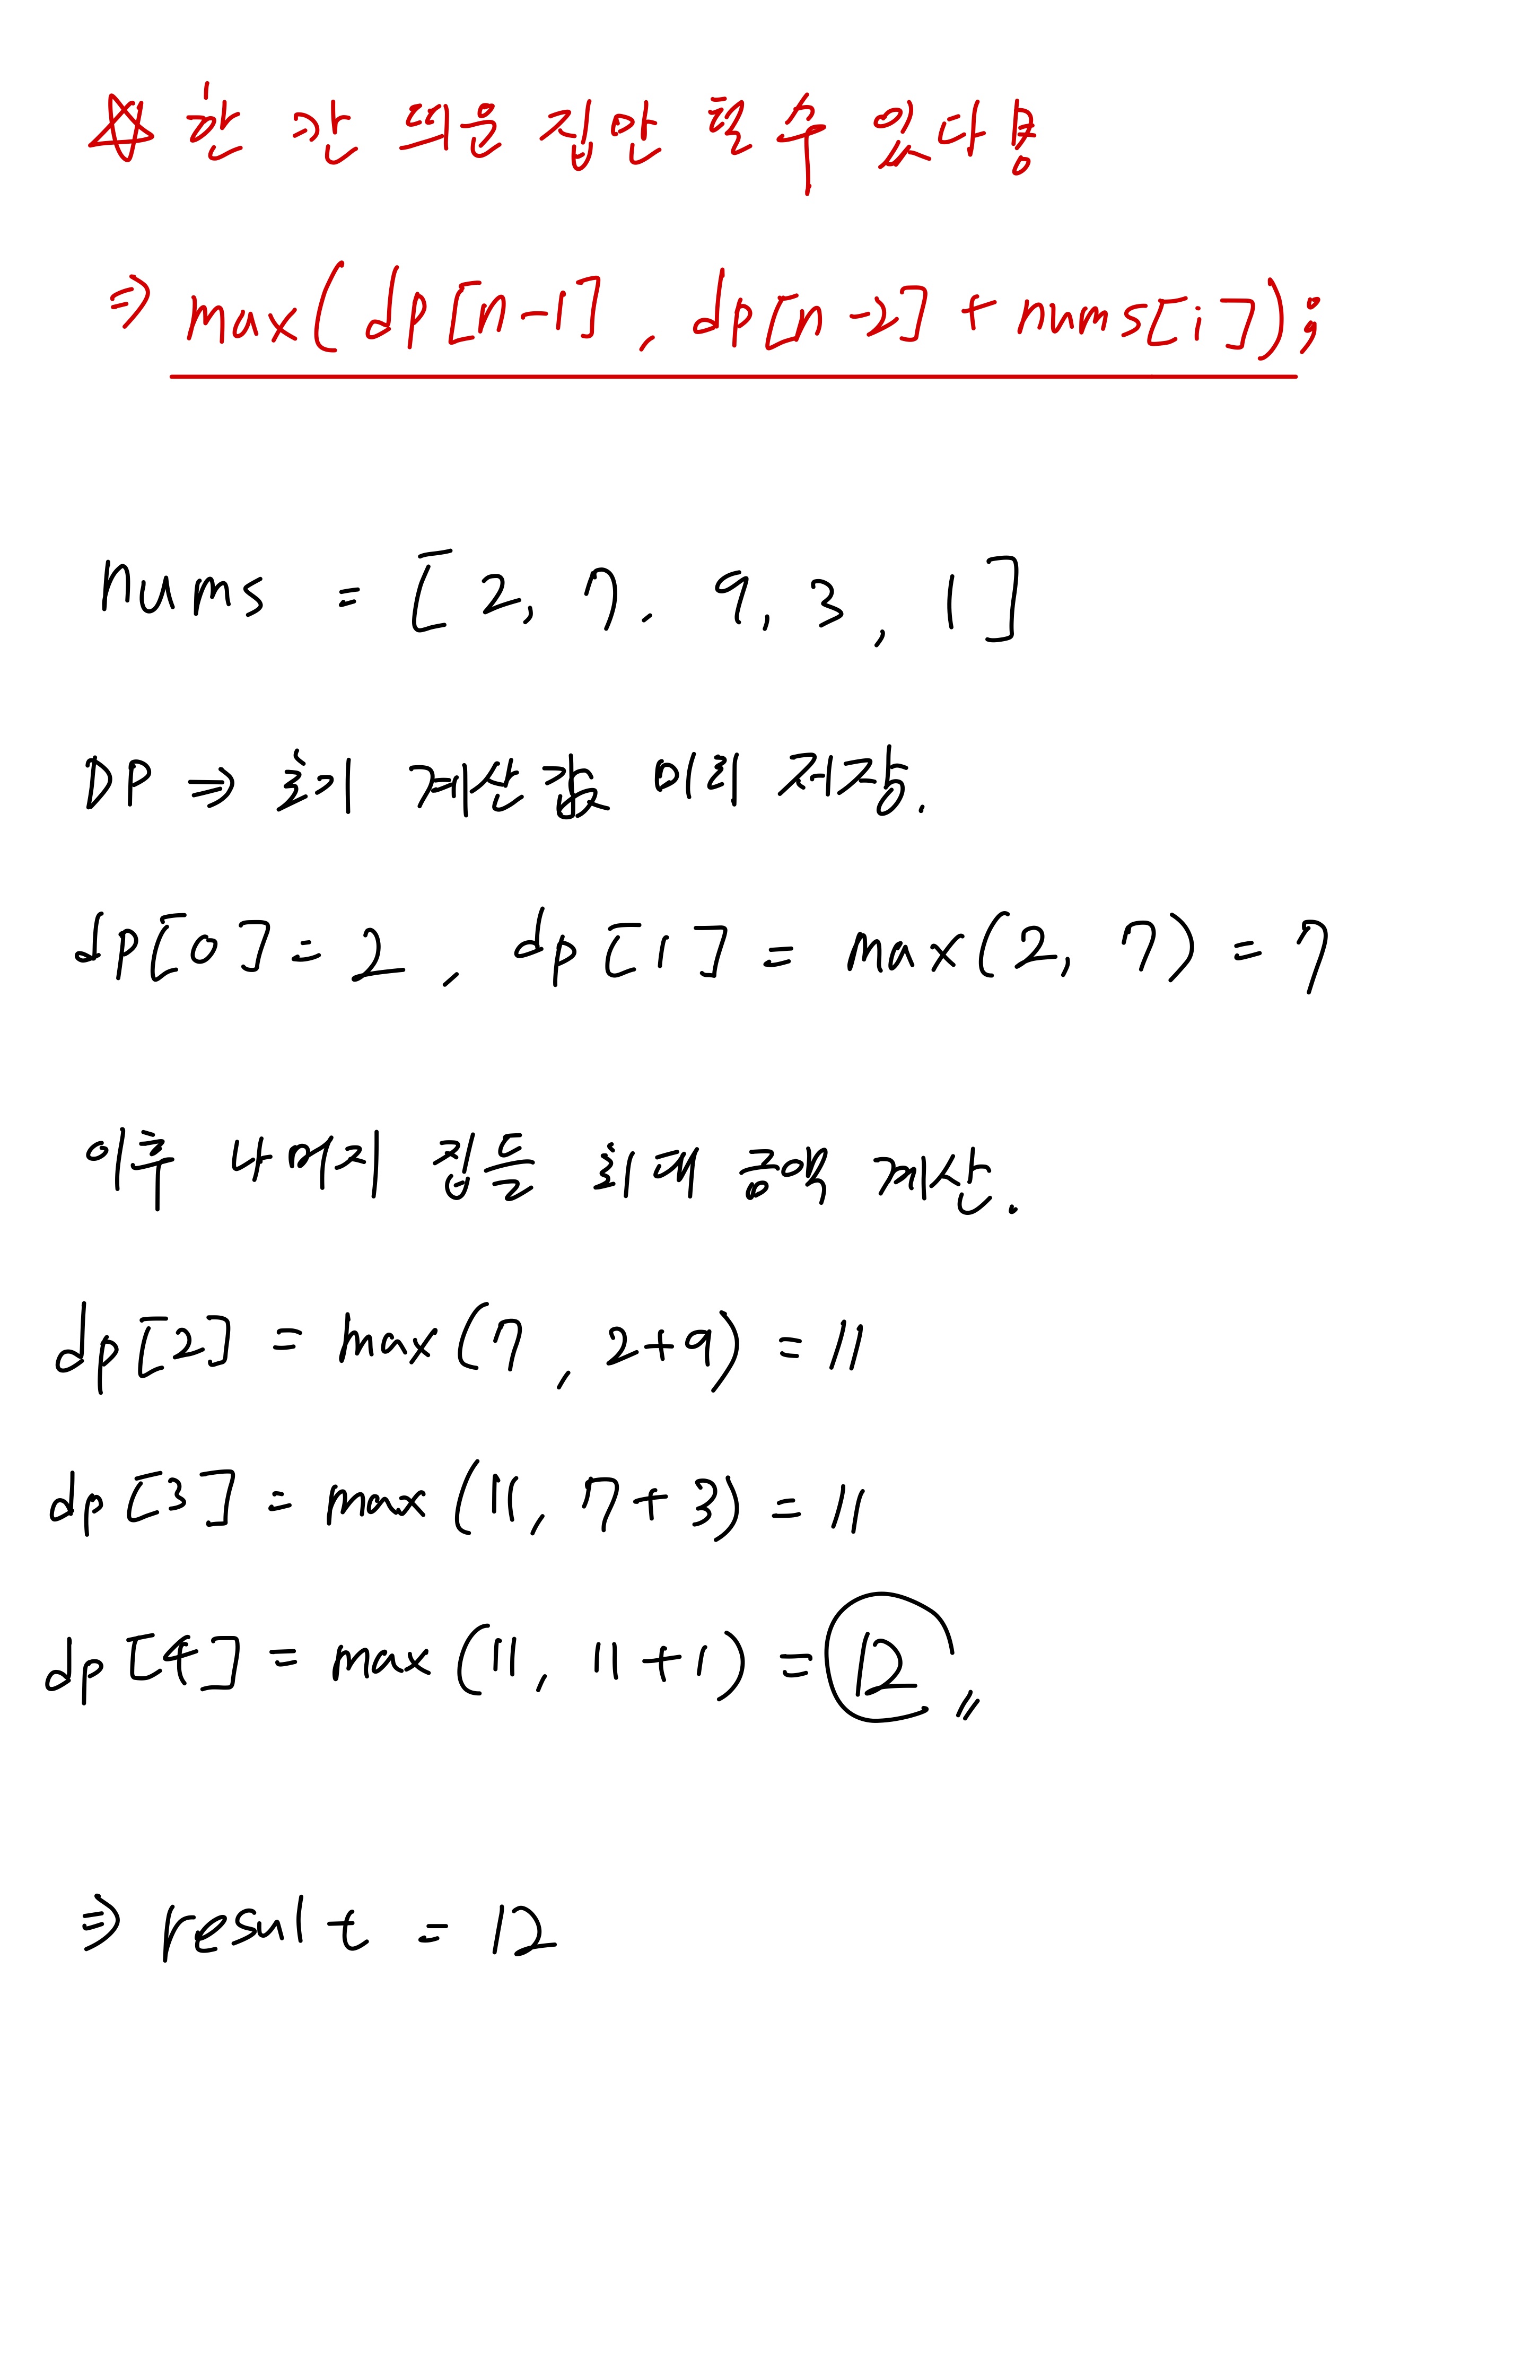 ☆ 한 칸 의웅 집만 훨 수 있다몽
⇒ max(dp[n-1], dp[n-2] + nums[i]);
nums = [2, 7, 9, 3, 1]
DP ⇒ 초기 계산값 미리 저장.
dp[0] = 2, dp[1] = max(2, 7) = 7
이후 나머지 집들 최대 금액 계산.
dp[2] = max(7, 2+9) = 11
dp[3] = max(11, 7+3) = 11
dp[4] = max(11, 11+1) = 12 〃
⇒ result = 12